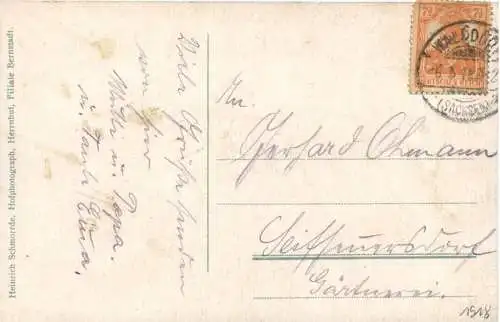 Heinrich Schmorrde, Hofphotograph, Herrnhut, Filiale Bernstadt.
Viele Grüße senden
von hier
Mutti u. Papa.
u. Tante
An.
Gerhard Ohmann
Seifhennersdorf
Gärtnerei.
(SACHSEN)
1918